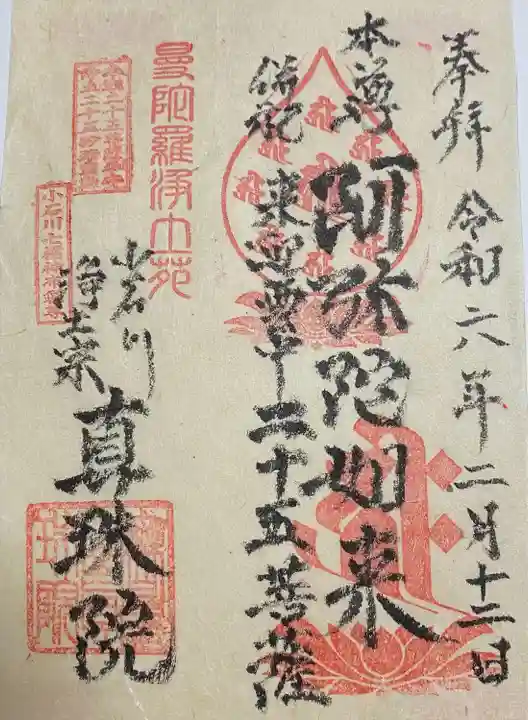 奉拝 令和六年二月十二日
本尊 阿弥陀如来
併祀 来迎雲中二十五菩薩
曼陀羅浄土苑
小石川
浄土宗 真珠院